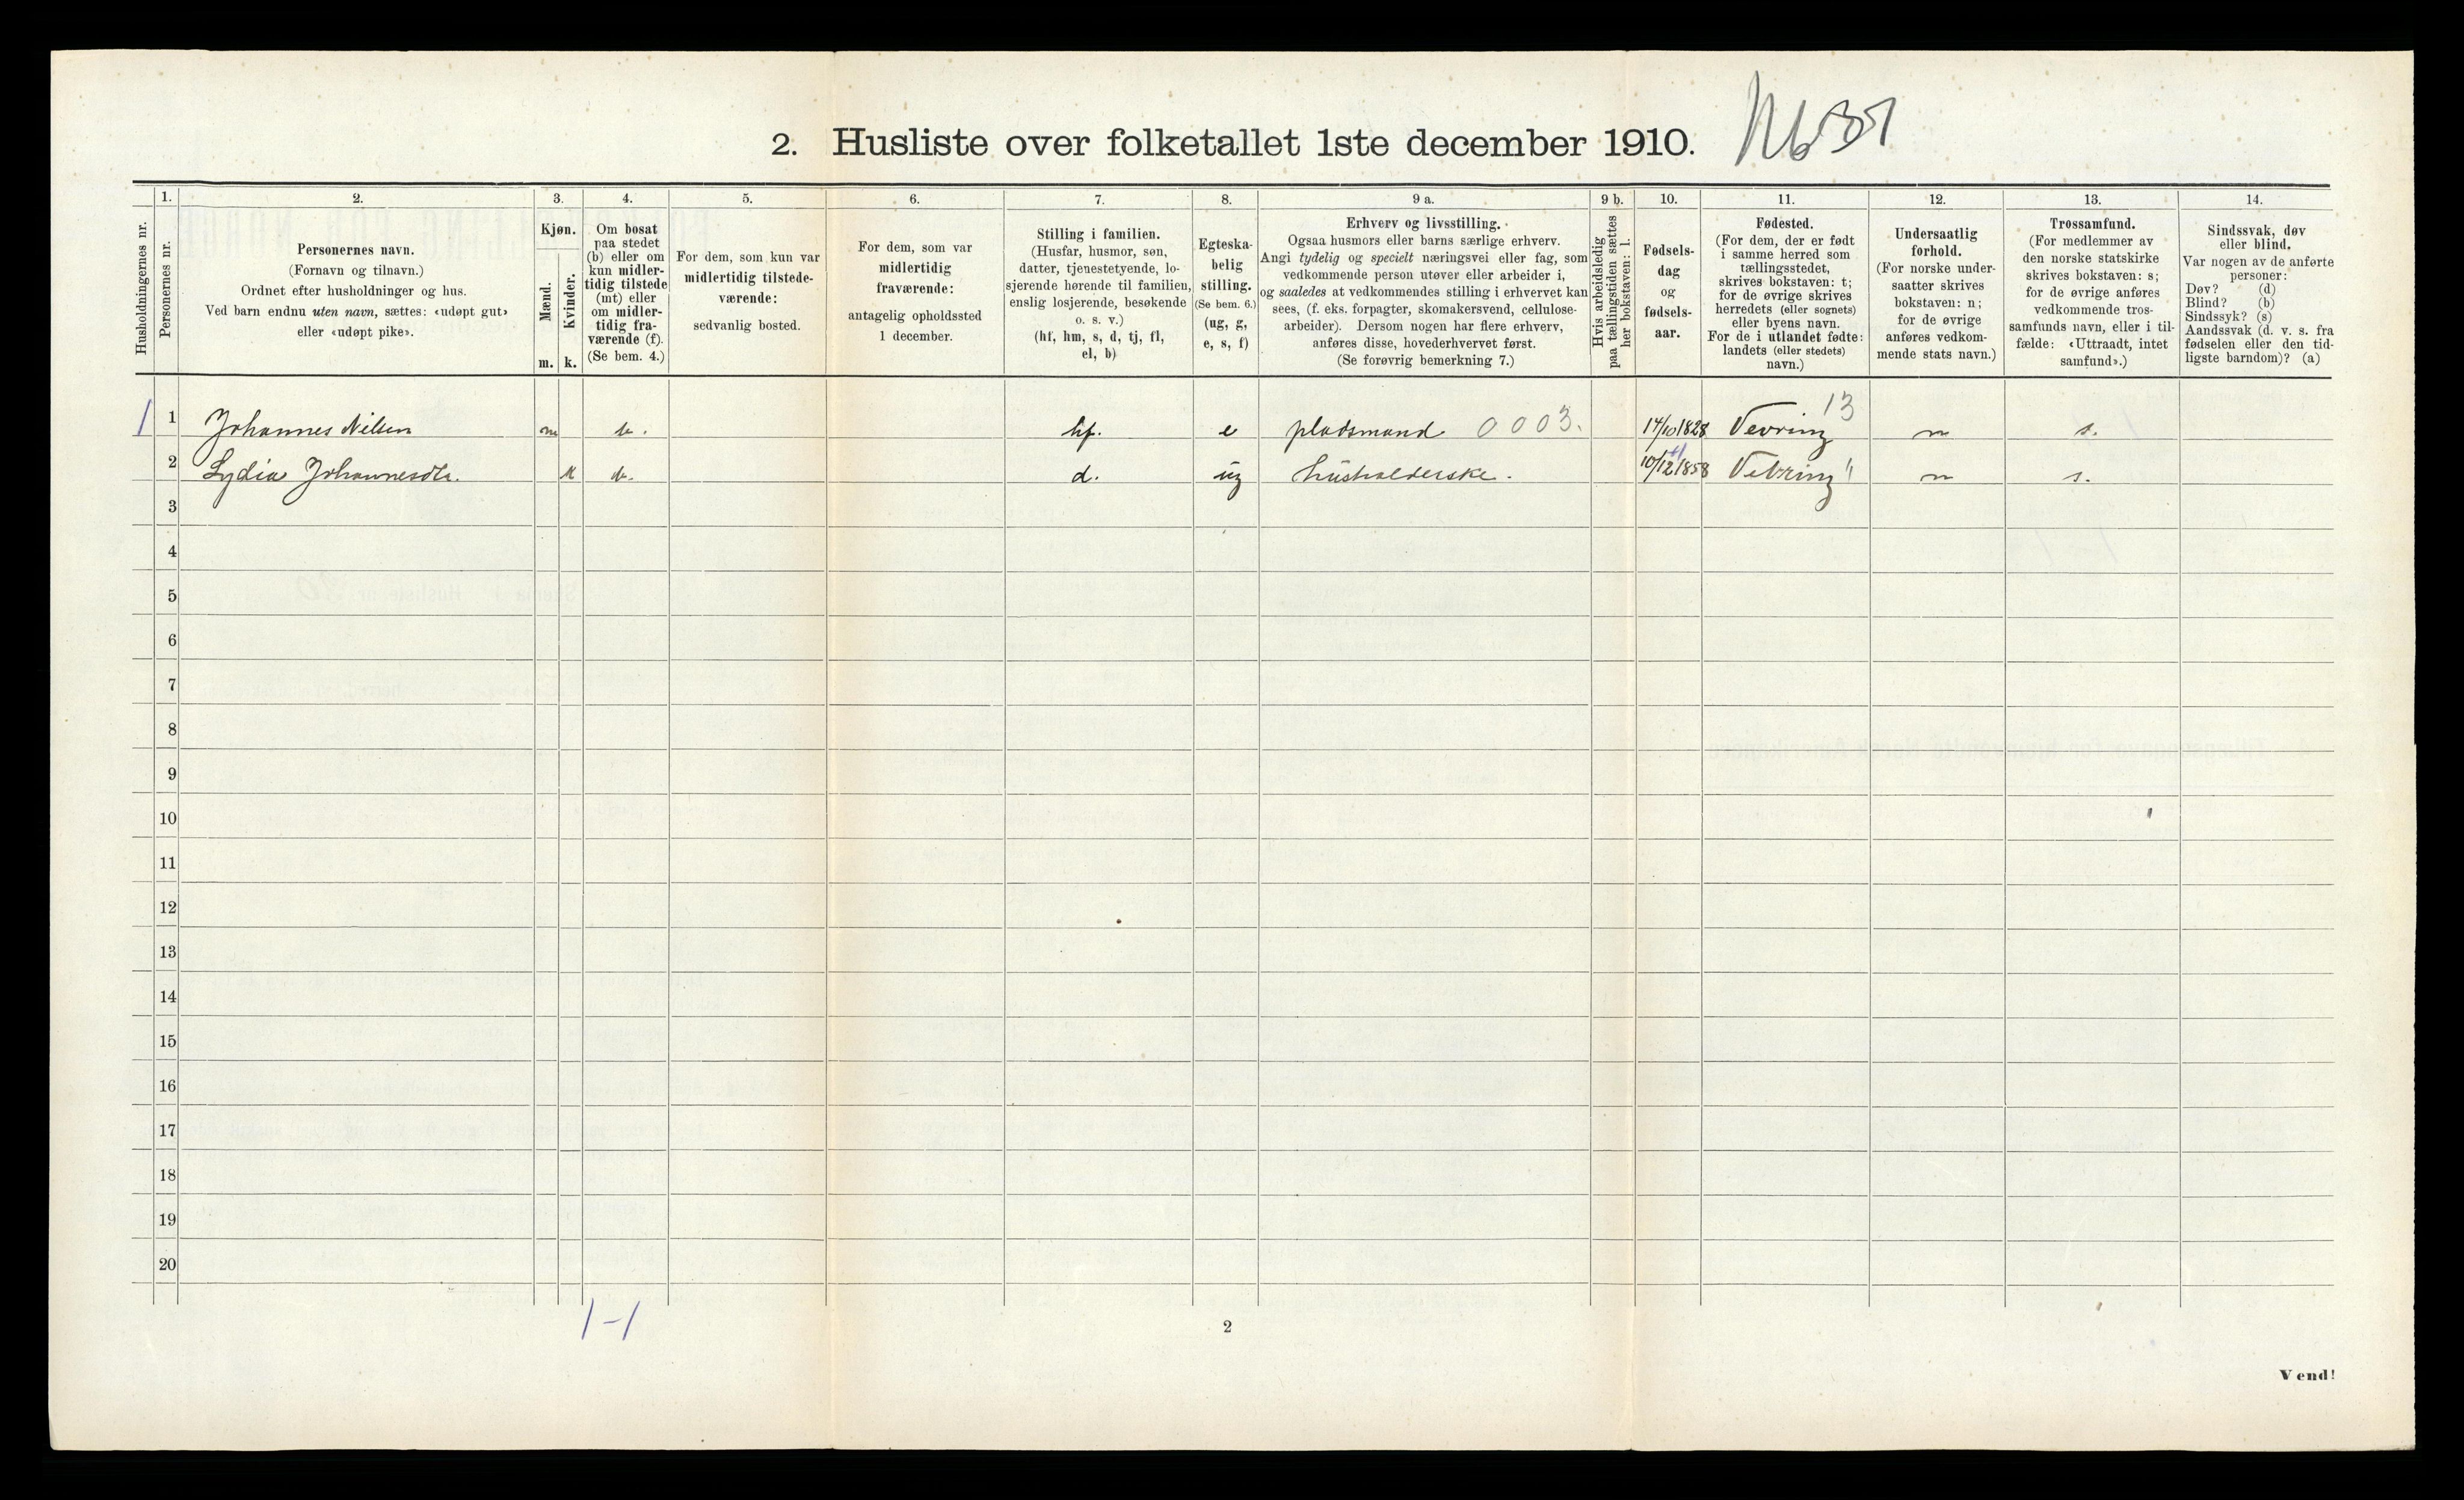 2. Husliste over folketallet 1ste december 1910.
Husholdningernes nr.
1.
Personernes nr.
2.
Personernes navn.
(Fornavn og tilnavn.)
Ordnet efter husholdninger og hus.
Ved barn endnu uten navn, sættes: «udøpt gut»
eller «udøpt pike».
3.
Kjøn.
Mænd.
Kvinder.
m. k.
4.
Om bosat
paa stedet
(b) eller om
kun midler-
tidig tilstede
(mt) eller
om midler-
tidig fra-
værende (f).
(Se bem. 4.)
5.
For dem, som kun var
midlertidig tilstede-
værende:
sedvanlig bosted.
6.
For dem, som var
midlertidig
fraværende:
antagelig opholdssted
1 december.
7.
Stilling i familien.
(Husfar, husmor, søn,
datter, tjenestetyende, lo-
sjerende hørende til familien,
enslig losjerende, besøkende
o. s. v.)
(hf, hm, s, d, tj, fl,
el, b)
8.
Egteska-
belig
stilling.
(Se bem. 6.)
(ug, g,
e, s, f)
9 a.
Erhverv og livsstilling.
Ogsaa husmors eller barns særlige erhverv.
Angi tydelig og specielt næringsvei eller fag, som
vedkommende person utøver eller arbeider i,
og saaledes at vedkommendes stilling i erhvervet kan
sees, (f. eks. forpagter, skomakersvend, cellulose-
arbeider). Dersom nogen har flere erhverv,
anføres disse, hovederhvervet først.
(Se forøvrig bemerkning 7.)
9 b.
Hvis arbeidsledig
paa tællingstiden sættes
her bokstaven: l.
10.
Fødsels-
dag
og
fødsels-
aar.
11.
Fødested.
(For dem, der er født
i samme herred som
tællingsstedet,
skrives bokstaven: t;
for de øvrige skrives
herredets (eller sognets)
eller byens navn.
For de i utlandet fødte:
landets (eller stedets)
navn.)
12.
Undersaatlig
forhold.
(For norske under-
saatter skrives
bokstaven: n;
for de øvrige
anføres vedkom-
mende stats navn.)
13.
Trossamfund.
(For medlemmer av
den norske statskirke
skrives bokstaven: s;
for de øvrige anføres
vedkommende tros-
samfunds navn, eller i til-
fælde: «Uttraadt, intet
samfund».)
14.
Sindssvak, døv
eller blind.
Var nogen av de anførte
personer:
Døv? (d)
Blind? (b)
Sindssyk? (s)
Aandssvak (d. v. s. fra
fødselen eller den tid-
ligste barndom)? (a)
1 1 Johannes Nilsen m b. hf. e pladsmand 0003. 14/10 1828 Vevring 13 n s.
2 Lydia Johannesdtr. k b. d. ug husholderske. 10/12 1858 Vevring " n s.
3
4
5
6
7
8
9
10
11
12
13
14
15
16
17
18
19
20
1-1
2
Vend!